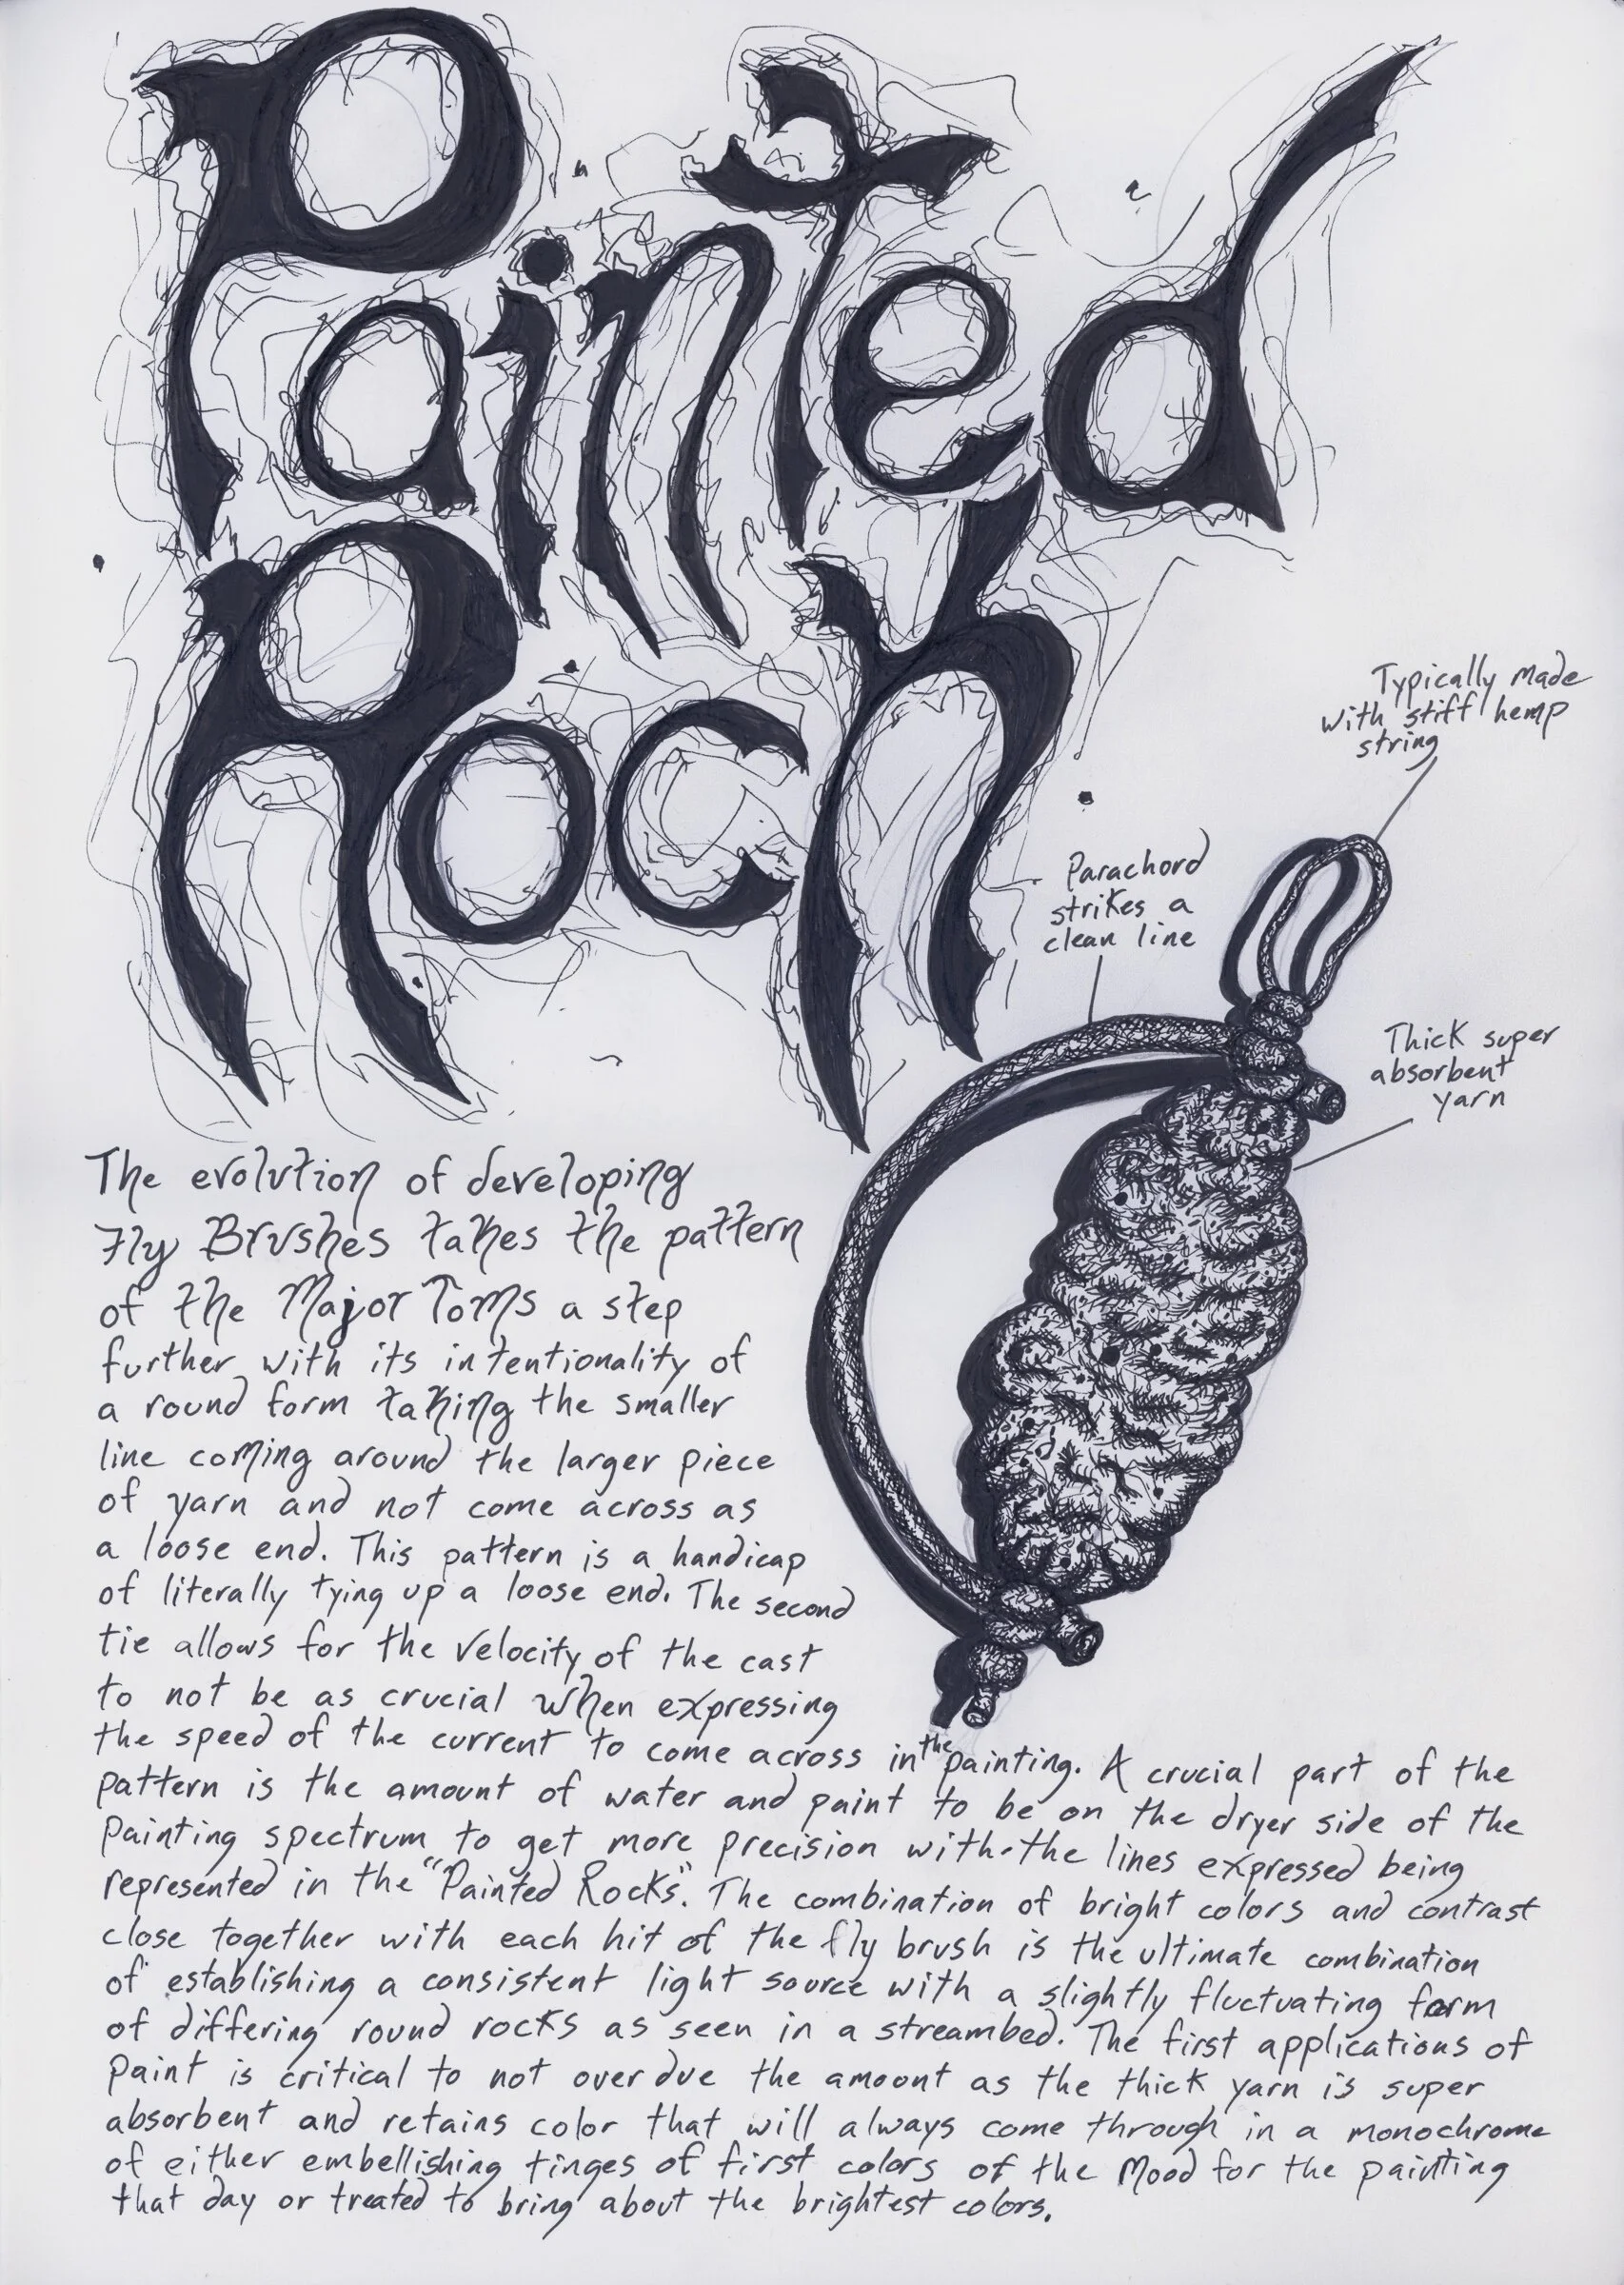 Painted
Rock
Typically made
with stiff hemp
string
Parachord
strikes a
clean line
Thick super
absorbent
yarn
The evolution of developing
Fly Brushes takes the pattern
of the Major Toms a step
further with its intentionality of
a round form taking the smaller
line coming around the larger piece
of yarn and not come across as
a loose end. This pattern is a handicap
of literally tying up a loose end. The second
tie allows for the velocity of the cast
to not be as crucial when expressing
the speed of the current to come across in the painting. A crucial part of the
pattern is the amount of water and paint to be on the dryer side of the
painting spectrum to get more precision with the lines expressed being
represented in the "Painted Rocks". The combination of bright colors and contrast
close together with each hit of the fly brush is the ultimate combination
of establishing a consistent light source with a slightly fluctuating form
of differing round rocks as seen in a streambed. The first applications of
paint is critical to not over due the amount as the thick yarn is super
absorbent and retains color that will always come through in a monochrome
of either embellishing tinges of first colors of the mood for the painting
that day or treated to bring about the brightest colors.